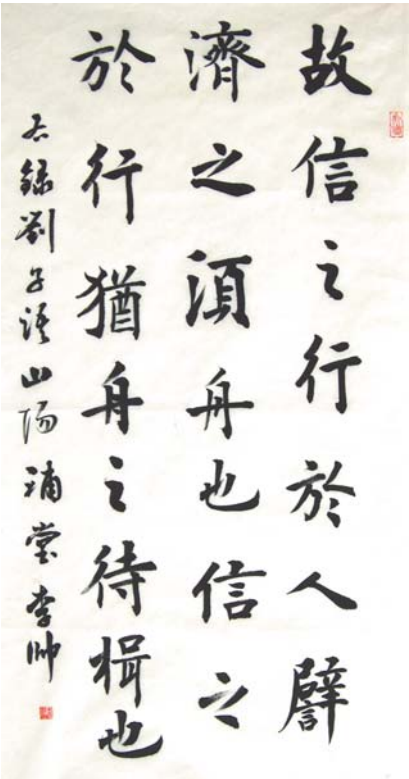 故信之行於人譬
濟之須舟也信之
於行猶舟之待楫也
右錄劉子語山陽瑀堂李帥